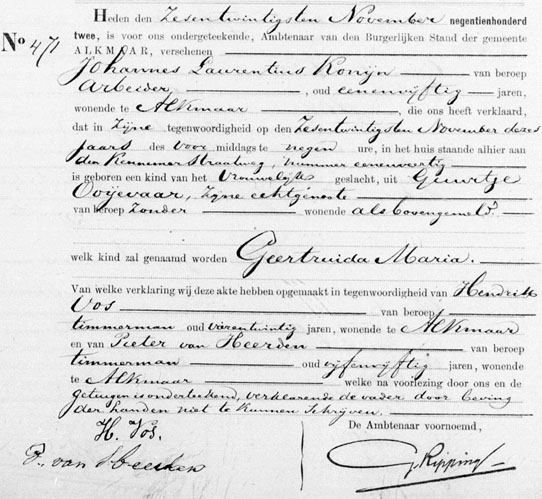 Heden den Zesentwintigsten November negentienhonderd
No 471 twee, is voor ons ondergeteekende, Ambtenaar van den Burgerlijken Stand der gemeente
ALKMAAR, verschenen
Johannes Laurentius Konijn van beroep
arbeider, oud eenenvijftig jaren,
wonende te Alkmaar, die ons heeft verklaard,
dat in Zijne tegenwoordigheid op den Zesentwintigsten November dezes
jaars des voor middags te negen ure, in het huis staande alhier aan
den Kennemerstraatweg, nummer eenenveertig
is geboren een kind van het vrouwelijke geslacht, uit Geurtje
Ooijevaar, Zijne echtgenoote
van beroep Zonder wonende als bovengemeld.
welk kind zal genaamd worden Geertruida Maria.
Van welke verklaring wij deze akte hebben opgemaakt in tegenwoordigheid van Hendrik
Vos van beroep
timmerman oud vierentwintig jaren, wonende te Alkmaar
en van Pieter van Heerden van beroep
timmerman oud vijfenvijftig jaren, wonende
te Alkmaar welke na voorlezing door ons en de
getuigen is onderteekend, verklarende de vader door beving
der handen niet te kunnen schrijven.
De Ambtenaar voornoemd,
H. Vos.
P. van Heerden